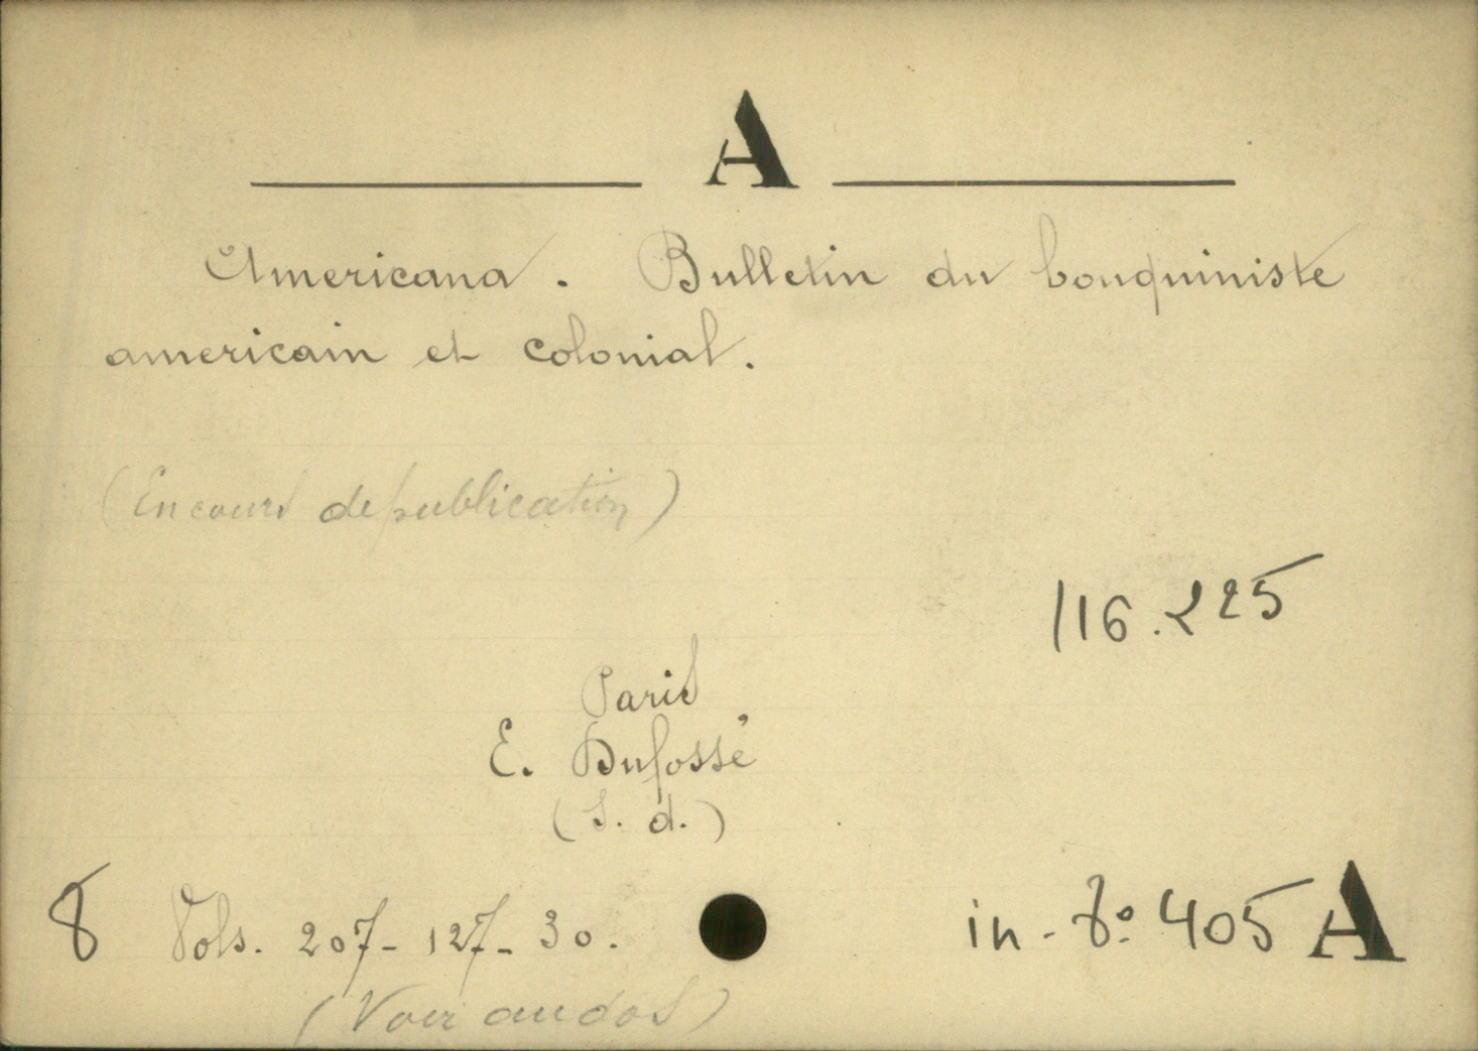 A
Americana. Bulletin du bouquiniste
americain et colonial.
(En cours de publication)
116.225
Paris
E. Dufossé
(S. d.)
8 Vols. 207-127-30. in-8º 405 A
(Voir au dos)